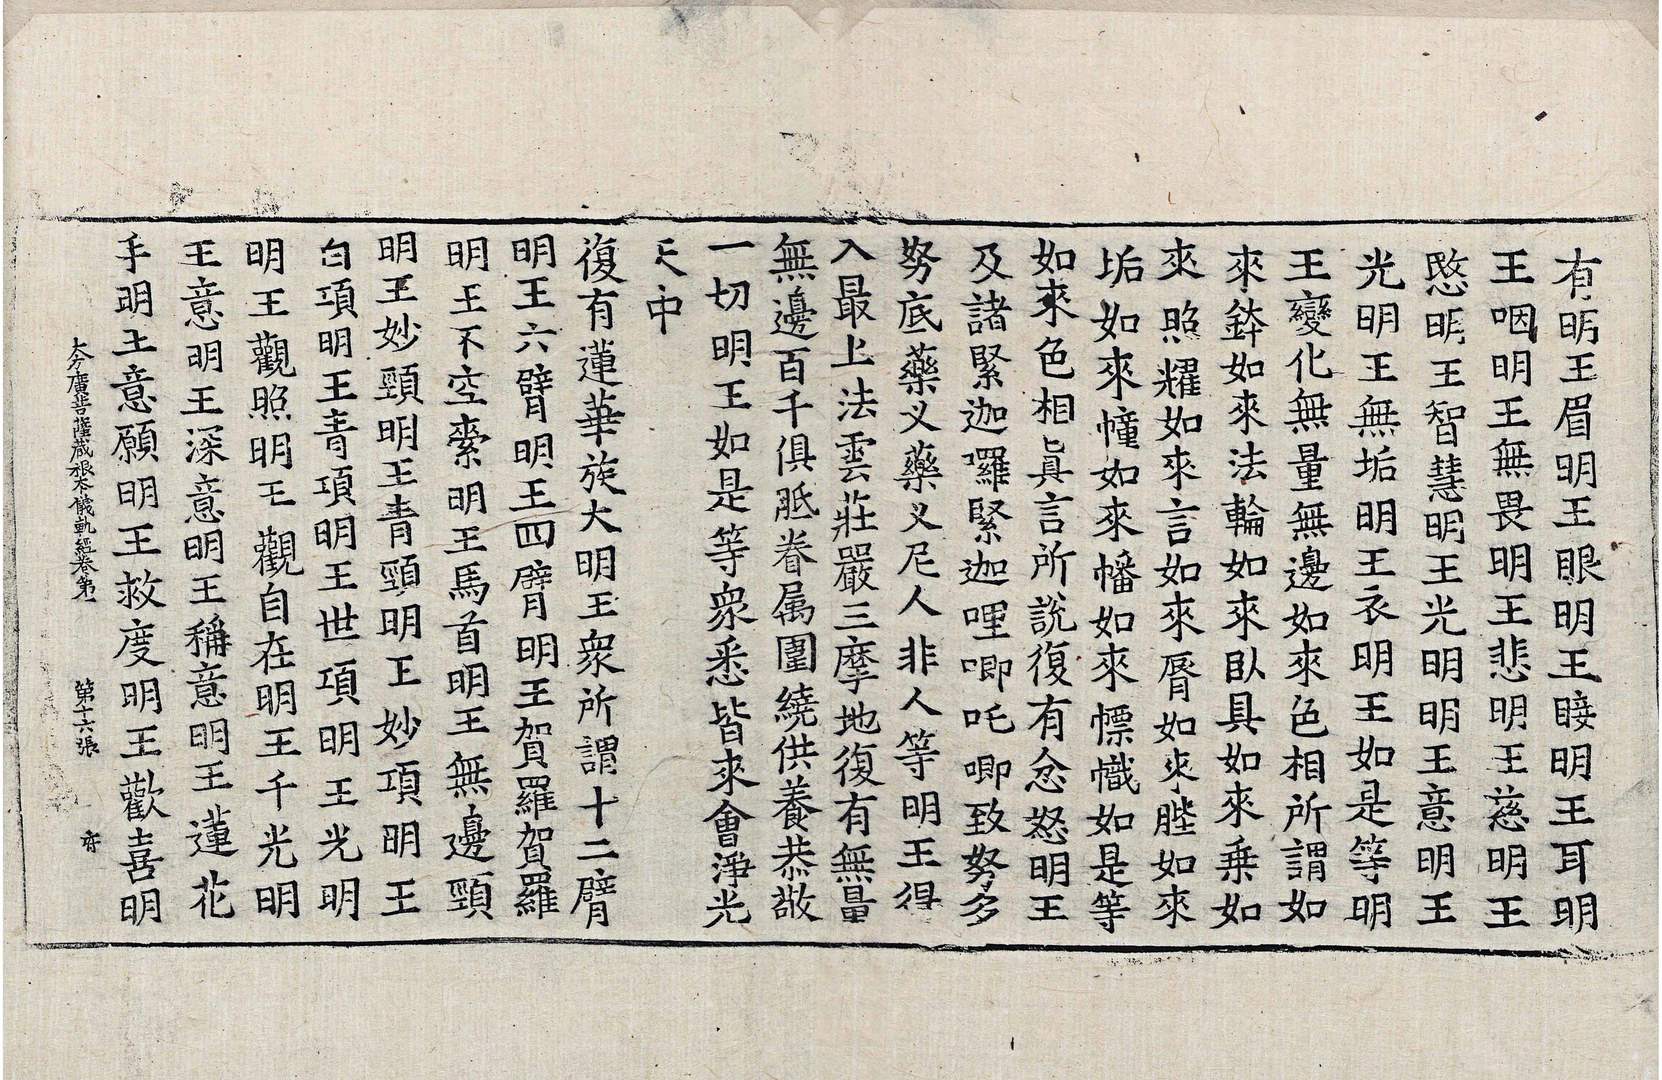 有明王眉明王眼明王睫明王耳明
王咽明王無畏明王悲明王慈明王
愍明王智慧明王光明明王意明王
光明王無垢明王衣明王如是等明
王變化無量無邊如來色相所謂如
來鉢如來法輪如來臥具如來乗如
來照耀如來言如來脣如來䏶如來
垢如來幢如來幡如來幖幟如是等
如來色相眞言所說復有忿怒明王
及諸緊迦囉緊迦哩唧吒唧致努多
努底藥义藥义尼人非人等明王得
入最上法雲莊嚴三摩地復有無量
無邊百千俱胝眷属圍繞供養恭敬
一切明王如是等衆悉皆來會淨光
天中
復有蓮華族大明王衆所謂十二臂
明王六臂明王四臂明王賀羅賀羅
明王不空羂明王馬首明王無邊頸
明王妙頸明王青頸明王妙項明王
白項明王青項明王世項明王光明
明王觀照明王觀自在明王千光明
王意明王深意明王稱意明王蓮花
手明王意願明王救度明王歡喜明
大方廣菩薩藏根本儀軌經卷第一 第十六張